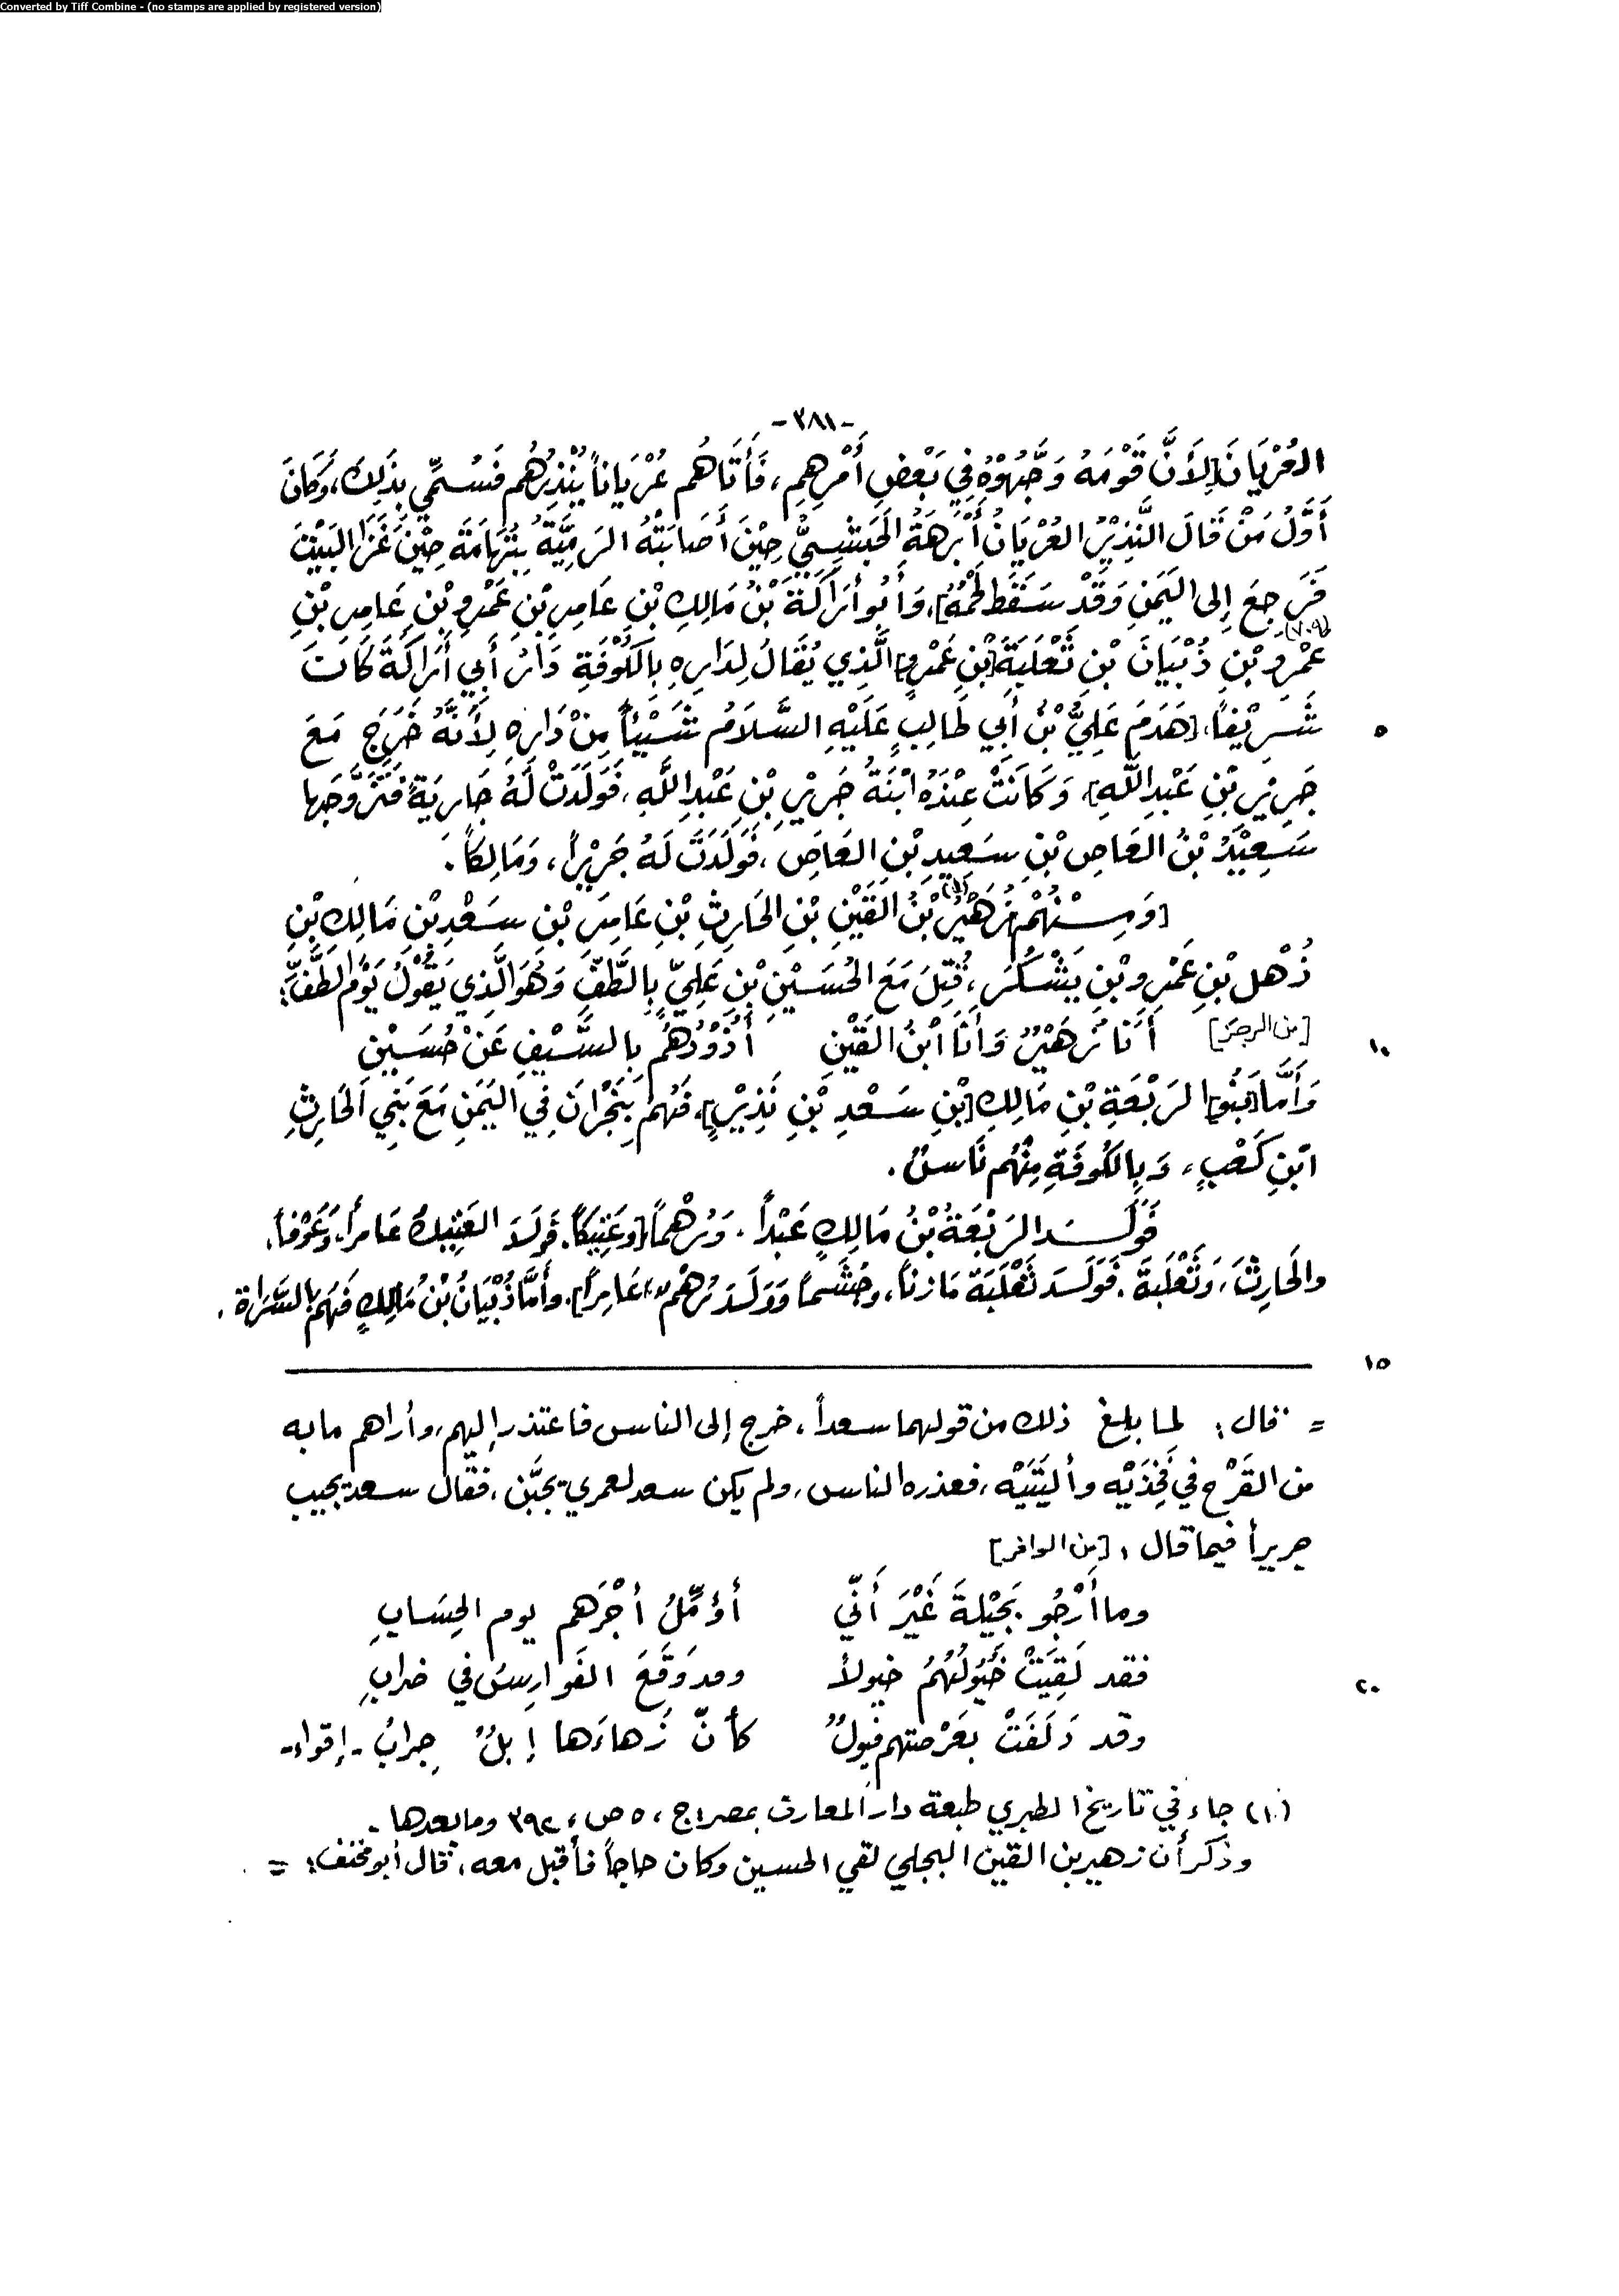 Converted by Tiff Combine - (no stamps are applied by registered version)
-٣٨١-
العُرْيَانَ [لِأَنَّ قَوْمَهُ وَجَّهُوْهُ فِي بَعْضِ أَمْرِهِمِ، فَأَتَاهُم عُرْيَاناً يُنْذِرُهُم فَسُمِّي بِذَلِكَ، وَكَانَ
أَوَّلُ مَنْ قَالَ النَّذِيْرُ العُرْيَانُ أَبْرَهَةُ الحَبَشِيُّ حِيْنَ أَصَابَتْهُ الرَمِيَّةُ بِتِهَامَةَ حِيْنَ غَزَا البَيْتَ
فَرَجِعَ إِلى اليَمَنِ وَقَدْ سَقَطَ لَحْمُهُ]، وَأَبُو أَرَاكَةَ بْنُ مَالِكِ بْنِ عَامِرِ بْنِ عَمْرِو بْنِ عَامِرِ بْنِ
(٧٠٩)
عَمْرِو بْنِ ذُبْيَانَ بْنِ ثَعْلَبَةَ [بْنِ عَمْرٍو] الَّذِي يُقَالُ لِدَارِهِ بِالكُوْفَةِ دَارُ أَبِي أَرَاكَةَ كَانَ
شَرِيْفاً، [هَدَمَ عَلِيُّ بْنُ أَبِي طَالِبٍ عَلَيْهِ السَّلَامُ شَيْئاً مِنْ دَارِهِ لِأَنَّهُ خَرَجَ مَعَ
٥
جَرِيْرِ بْنِ عَبْدِ اللَّهِ]، وَكَانَتْ عِنْدَهُ ابْنَةُ جَرِيْرِ بْنِ عَبْدِ اللَّهِ، فَوَلَدَتْ لَهُ جَارِيَةً فَتَزَوَّجَهَا
سَعِيْدُ بْنُ العَاصِ بْنِ سَعِيدِ بْنِ العَاصِ، فَوَلَدَتْ لَهُ جَرِيْراً، وَمَالِكاً.
[وَمِنْهُمْ زُهَيْرُ (١) بْنُ القَيْنِ بْنِ الحَارِثِ بْنِ عَامِرِ بْنِ سَعْدِ بْنِ مَالِكِ بْنِ
ذُهْلِ بْنِ عَمْرِو بْنِ يَشْكُرَ، قُتِلَ مَعَ الحُسَيْنِ بْنِ عَلِيٍّ بِالطَّفِّ وَهُوَ الَّذِي يَقُوْلُ يَوْمَ الطَّفِّ:
[من الرجز] أَنَا زُهَيْرٌ وَأَنَا ابْنُ القَيْنِ أَذُوْدُهُم بِالسَّيْفِ عَنْ حُسَيْنِ
١٠
وَأَمَّا [بَنُو] الرَبْعَةِ بْنِ مَالِكِ [بْنِ سَعْدِ بْنِ نَذِيْرٍ]، فَهُم بِنَجْرَانَ فِي اليَمَنِ مَعَ بَنِي الحَارِثِ
ابْنِ كَعْبٍ، وَبِالكُوفَةِ مِنْهُم نَاسٌ.
فَوَلَدَ الرَبْعَةُ بْنُ مَالِكٍ عَبْداً، وَرُهْماً [وعَتِيكاً. فَوَلَدَ العَتِيكُ عَامراً، وَعَوْفاً،
والحَارِثَ، وَثَعْلَبَةَ. فَوَلَدَ ثَعْلَبَةُ مَازناً، وجُشَماً وَوَلَدَ رُهْمٌ «» عَامِراً]. وأَمَّا ذُبْيَانُ بْنُ مَالِكٍ فَهُم بالسَّرَاة.
١٥
= قال: لما بلغ ذلك من قولهما سعداً، خرج إلى الناس فاعتذر إليهم، وأراهم ما به
من القَرْح في فَخِذَيْه وأليَتَيْه، فعذره الناس، ولم يكن سعد لعمري يجبَّن، فقال سعد يجيب
جريراً فيما قال: [من الوافر]
وما أَرْجُو بَجِيْلةَ غَيْرَ أَنِّي أؤمِّلُ أجْرَهم يوم الحِسَابِ
فقد لَقِيَتْ خُيُولُهُمُ خيولاً وقد وَقَعَ الفَوارِسُ في ضرابِ
٢٠
وقد دَلَفَتْ بعَرْصتهم فيولٌ كأنّ زَهاءَها إبلٌ جِرابُ -إقواء-
(١) جاء في تاريخ الطبري طبعة دار المعارف بمصر: ج، ٥ ص، ٣٩٢ وما بعدها.
وذكر أن زهير بن القين البجلي لقي الحسين وكان حاجاً فأقبل معه، قال أبو مخنف: =